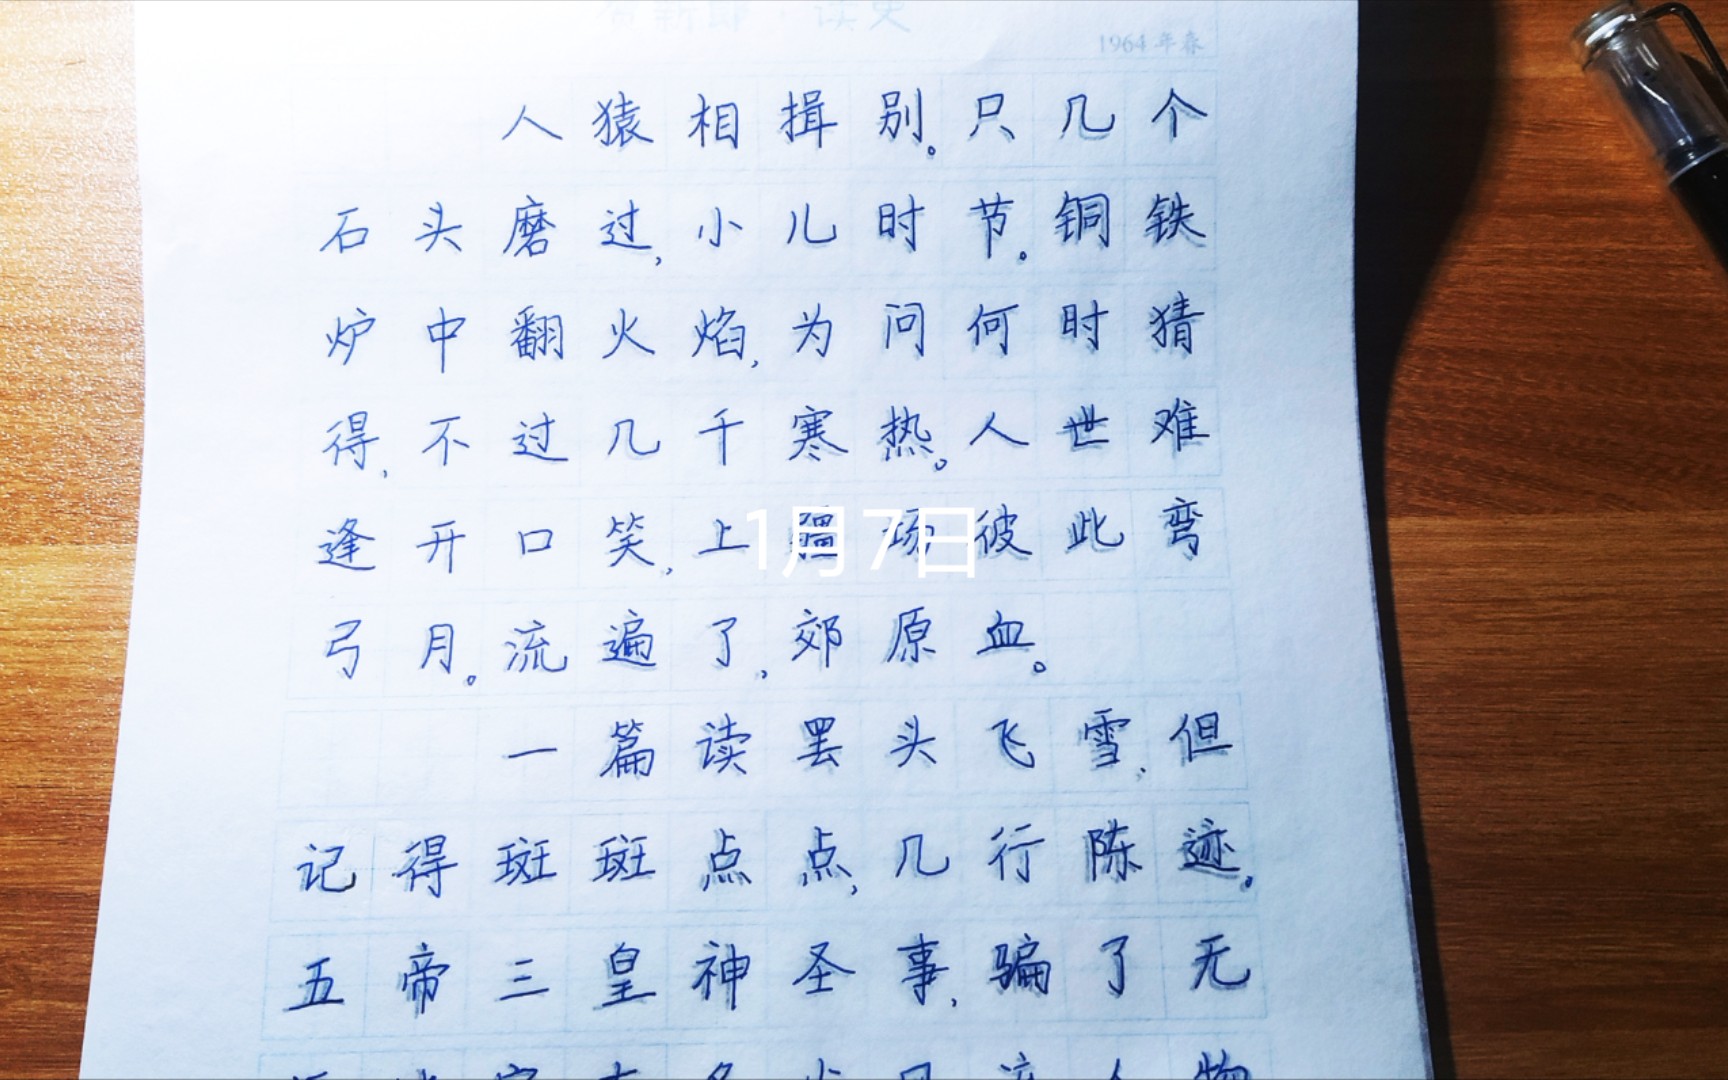 贺新郎·读史
1964年春
人猿相揖别。只几个
石头磨过,小儿时节。铜铁
炉中翻火焰,为问何时猜
得,不过几千寒热。人世难
逢开口笑,上疆场彼此弯
1月7日
弓月。流遍了,郊原血。
一篇读罢头飞雪,但
记得斑斑点点,几行陈迹。
五帝三皇神圣事,骗了无